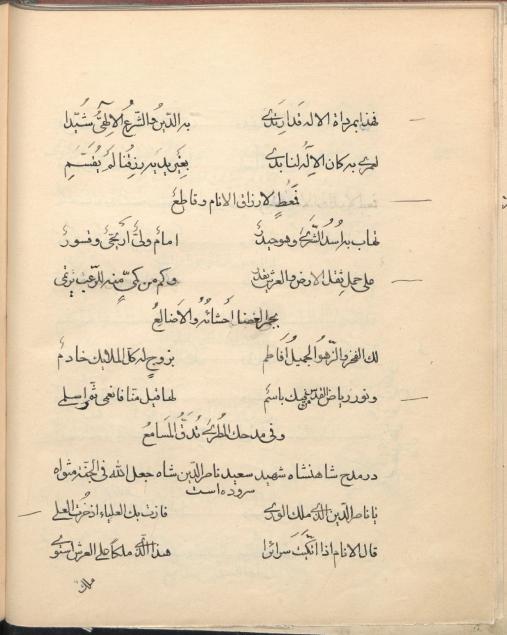 فهذا بمرداة الاله قد ارتدی به الدین والشرع الالهی شیدا
لمری به کان الاله لنا بدی بغیر یدیه رزقنا لم یقسم
معط لارزاق الانام وقاطع
تهاب به اسد الشری وهو حیدر امام ولی اریحی وقسور
علی حمله ثقل الارض والعرش یقدر وکم من کمی منه للرعب یرتمی
بجمر الغضا احشائه والاضالع
لك الفخر والزهو الجمیل افاطم بزوج له کل الملایك خادم
ونور ریاض القدس فیك باسم لها قیل منا فانعمی ثم واسلمی
وفی مدحك المطری تدق المسامع
در مدح شاهنشاه شهید سعید ناصر الدین شاه جعل الله فی الجنة مثواه
سروده است
یا ناصر الدین الذی ملك الوری فازت بك العلیاء اذ حزت العلی
قال الانام اذا اتکیت سرائرا هذا الذی ملکا علی العرش استوی
ملك